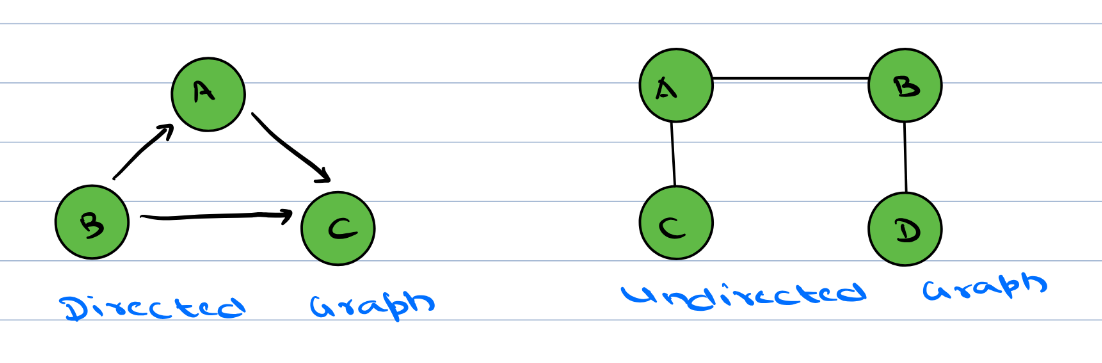 A
B
C
Directed Graph
A B
C D
Undirected Graph